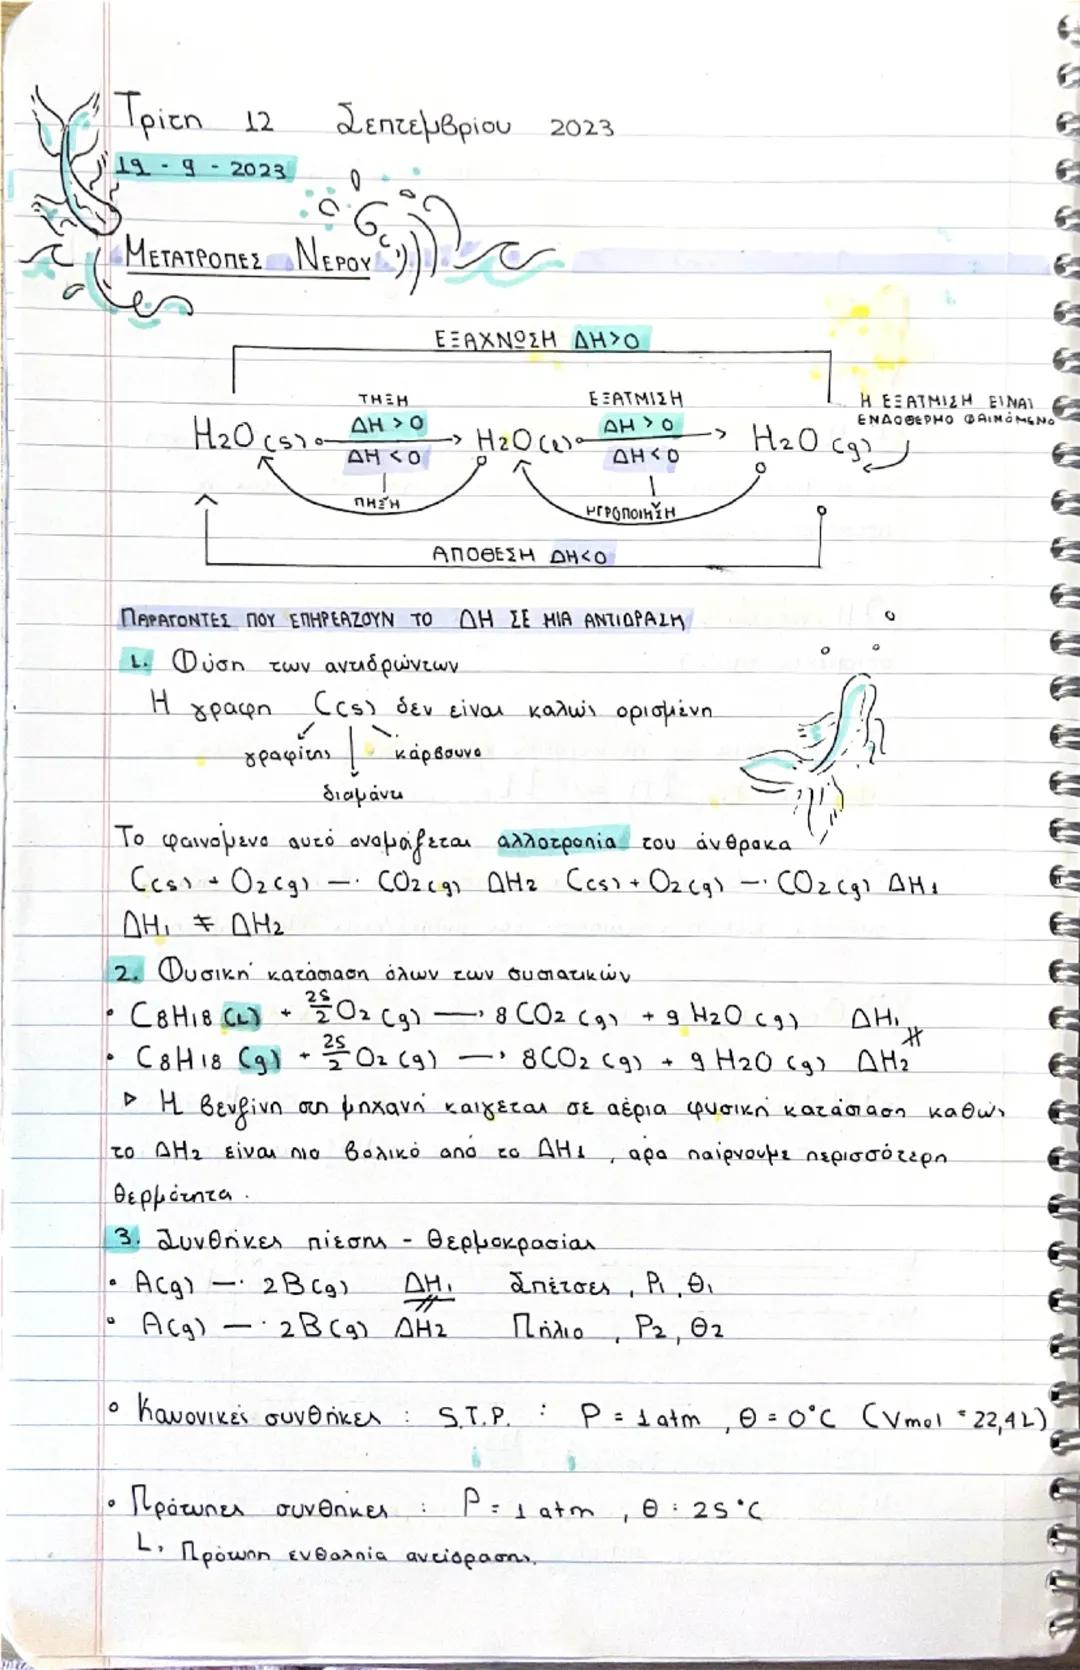 Τρίτη 12 Σεπτεμβρίου 2023
19 - 9 - 2023
ΜΕΤΑΤΡΟΠΕΣ ΝΕΡΟΥ
ΕΞΑΧΝΩΣΗ ΔΗ>0
ΤΗΞΗ
ΕΞΑΤΜΙΣΗ
Η ΕΞΑΤΜΙΣΗ ΕΙΝΑΙ
ΕΝΔΟΘΕΡΜΟ ΦΑΙΝΟΜΕΝΟ
ΔΗ > 0
ΔΗ > 0
H2O (s) → H2O (l) → H2O (g)
ΔΗ < 0
ΔΗ < 0
ΠΗΞΗ
ΥΓΡΟΠΟΙΗΣΗ
ΑΠΟΘΕΣΗ ΔΗ<0
ΠΑΡΑΓΟΝΤΕΣ ΠΟΥ ΕΠΗΡΕΑΖΟΥΝ ΤΟ ΔΗ ΣΕ ΜΙΑ ΑΝΤΙΔΡΑΣΗ
1. Φύση των αντιδρώντων
Η γραφη C(s) δεν είναι καλώς ορισμένη
γραφίτης κάρβουνο
διαμάντι
Το φαινόμενο αυτό ονομάζεται αλλοτροπία του άνθρακα
C(s) + O2(g) → CO2(g) ΔΗ2 C(s) + O2(g) → CO2(g) ΔΗ1
ΔΗ1 ≠ ΔΗ2
2. Φυσική κατάσταση όλων των συστατικών
• C8H18 (L) + 25/2 O2 (g) → 8 CO2 (g) + 9 H2O (g) ΔΗ1
≠
• C8H18 (g) + 25/2 O2 (g) → 8CO2 (g) + 9 H2O (g) ΔΗ2
▷ Η βενζίνη στη μηχανή καίγεται σε αέρια φυσική κατάσταση καθώς
το ΔΗ2 είναι πιο βολικό από το ΔΗ1, αρα παίρνουμε περισσότερη
θερμότητα.
3. Συνθήκες πίεσης - Θερμοκρασίας
• A(g) → 2B(g) ΔΗ1 Σπέτσες, P1, Θ1
≠
• A(g) → 2B(g) ΔΗ2 Πήλιο, P2, Θ2
• Κανονικές συνθήκες : S.T.P. : P = 1 atm, Θ = 0°C (Vmol = 22,4L)
• Πρότυπες συνθήκες : P = 1 atm, Θ : 25 °C
L, Πρότυπη ενθαλπία αντίδρασης.